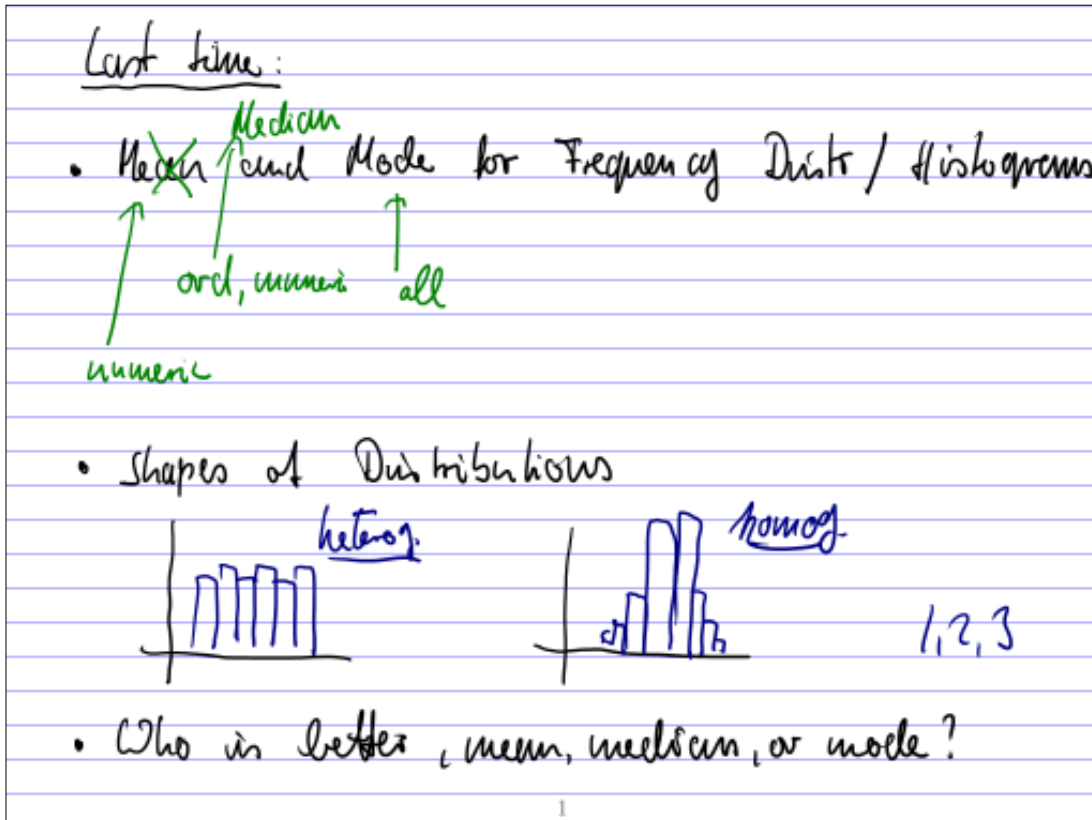 Last time:
Median
• Mean and Mode for Frequency Distr / Histograms
ord, numeric all
numeric
• Shapes of Distributions
heterog. homog.
1, 2, 3
• Who is better, mean, median, or mode?
1